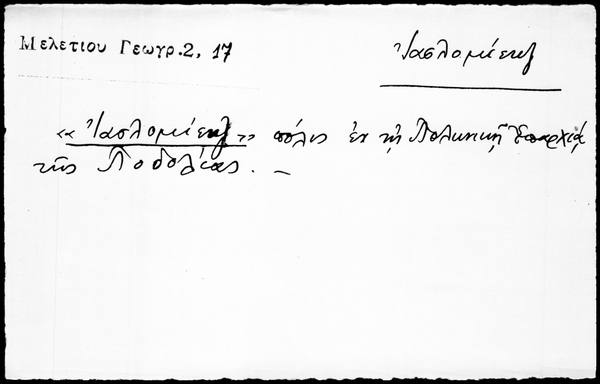 Μελετίου Γεωγρ.2, 17
Ἰασλομιένζ
«Ἰασλομιένζ» πόλις ἐν τῇ Πολωνικῇ Ἐπαρχίᾳ
τῆς Ποδολίας. –